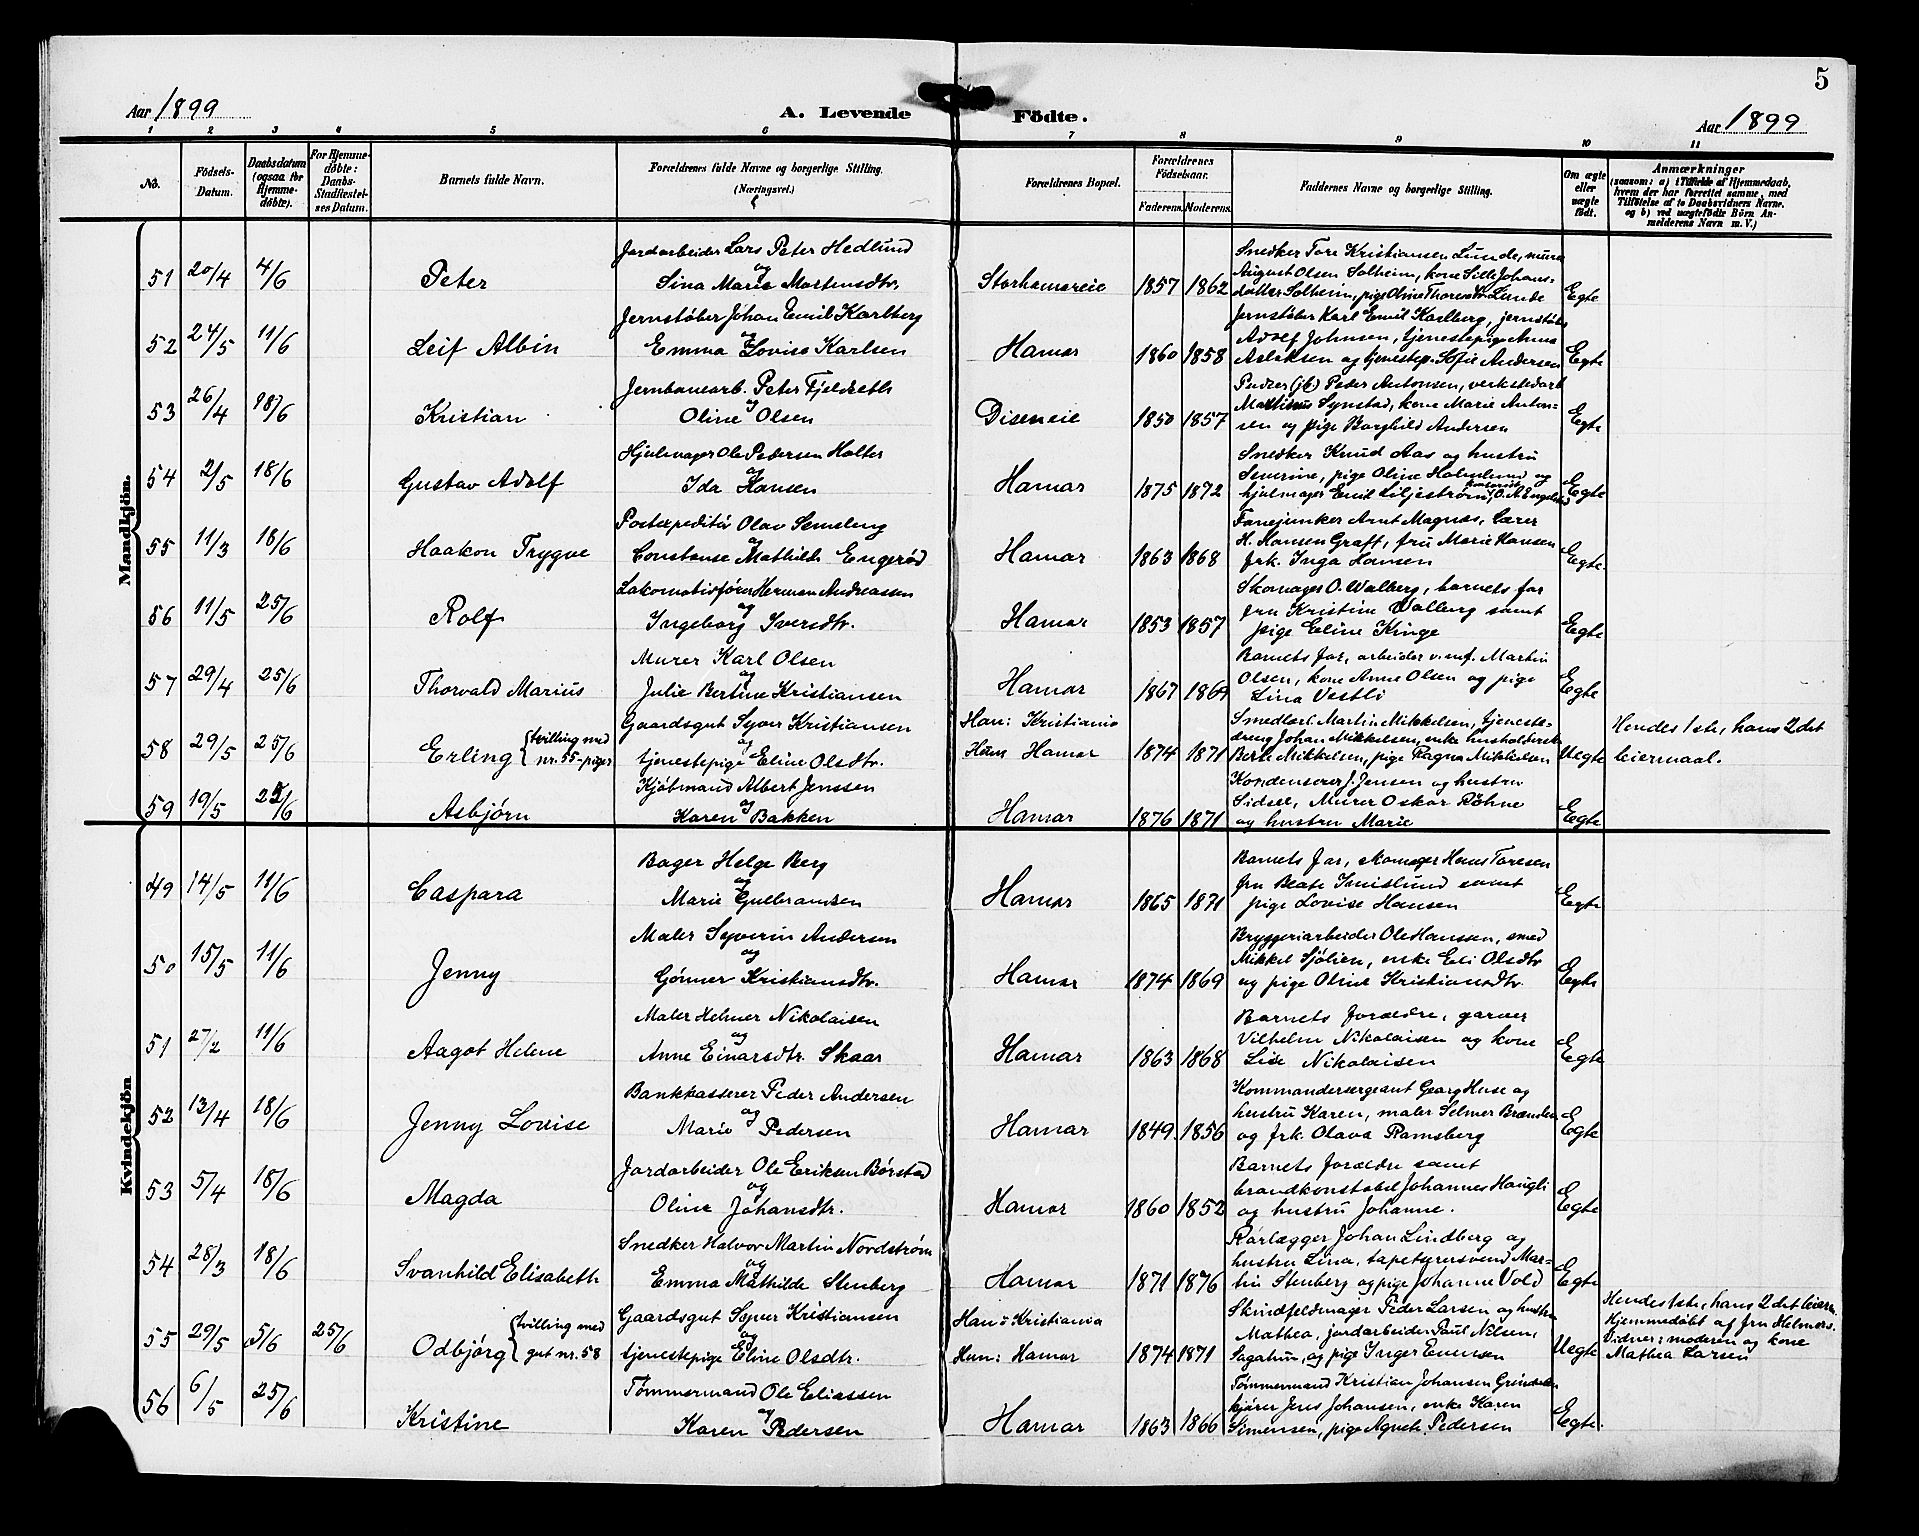 5
Aar 1899
A. Levende Födte.
Aar 1899
1 2 3 4 5 6 7 8 9 10 11
No.
Födsels-Datum.
Daabsdatum (ogsaa for Hjemmedøbte).
For Hjemmedøbte: Daabs-Stadfæstelses Datum.
Barnets fulde Navn.
Forældrenes fulde Navne og borgerlige Stilling. (Næringsvei.)
Forældrenes Bopæl.
Forældrenes Födselsaar.
Faderens. Moderens.
Faddernes Navne og borgerlige Stilling.
Om ægte eller uægte födt.
Anmærkninger
(saasom: a) i Tilfælde af Hjemmedaab, hvem der har forrettet samme, med Tilföielse af to Daabsvidners Navne, og b) ved uægtefödte Börn Anmelderens Navn m. V.)
Mandkjön.
51 20/4 4/6 Peter
Jordarbeider Lars Peter Hedlund
og
Sina Marie Mortensdtr.
Storhamareie 1857 1862
Snedker Tore Kristiansen Lunde, murer
August Olsen Solheim, kone Sille Johans-
datter Solheim, pige Oline Thoresdtr Lunde
Egte
52 24/5 11/6 Leif Albin
Jernstøber Johan Emil Karlberg
og
Emma Lovise Karlsen
Hamar 1860 1858
Jernstøber Karl Emil Karlberg, jernstøber
Adolf Johnsen, tjenestepige Anna
Aslaksen og tjenestep. Sofie Andersen
Egte
53 26/4 18/6 Kristian
Jernbanearb. Peter Fjeldseth
og
Oline Olsen
Diseneie 1850 1857
Pudser (jb) Peder Antonsen, verkstedarb
Martinus Synstad, kone Marie Anton-
sen og pige Borghild Andersen
Egte
54 2/5 18/6 Gustav Adolf
Hjulmager Ole Pedersen Holter
og
Ida Hansen
Hamar 1875 1872
Snedker Knud Aas og hustru
Severine, pige Oline Holmlund og
hjulmager Emil Liljestrøm, O. A. Engelstad
Egte
55 11/3 18/6 Haakon Trygve
Postexpeditør Olav Semsleng
og
Constanse Mathilde Engerød
Hamar 1863 1868
Fanejunker Arnt Magnæs, Lærer
H. Hansen Graff, fru Marie Hansen
frk. Inga Hansen
Egte.
56 11/5 25/6 Rolf
Lokomotivfører Herman Andreassen
og
Ingeborg Iversdtr.
Hamar 1853 1857
Skomager O. Walberg, barnets far
fru Kristine Walberg samt
pige Eline Kinge
Egte
57 29/4 25/6 Thorvald Marius
Murer Karl Olsen
og
Julie Bertine Kristiansen
Hamar 1867 1869
Barnets far, arbeider v. mf. Martin
Olsen, kone Anne Olsen og pige
Lina Vestli
Egte
58 29/5 25/6 Erling {tvilling med
nr. 55-piger
Gaardsgut Syver Kristiansen
og
tjenestepige Eline Olsdtr.
Han: Kristiania
Hun: Hamar 1874 1871
Smedlærl. Martin Mikkelsen, tjeneste-
dreng Johan Mikkelsen, enke husholderske
Berte Mikkelsen, pige Ragna Mikkelsen
Uegte
Hendes 1ste, hans 2det
leiermaal.
59 19/5 25/6 Asbjørn
Kjøbmand Albert Jenssen
og
Karen Bakken
Hamar 1876 1871
Kondenserer J. Jensen og hustru
Sidsel, Murer Oskar Røhne
og hustru Marie
Egte
Kvindekjön
49 14/5 11/6 Caspara
Bager Helge Berg
og
Marie Gulbransen
Hamar 1865 1871
Barnets far, skomager Hans Toresen
fru Beate Imislund samt
pige Lovise Hansen
Egte
50 15/5 11/6 Jenny
Maler Syverin Andersen
og
Gønner Kristiansdtr.
Hamar 1874 1869
Bryggeriarbeider Ole Hanssen, smed
Mikkel Sjølien, enke Eli Olsdtr
og pige Oline Kristiansdtr.
Egte
51 27/2 11/6 Aagot Helene
Maler Helmer Nikolaisen
og
Anne Einarsdtr. Skaar
Hamar 1863 1868
Barnets forældre, garver
Vilhelm Nikolaisen og kone
Lise Nikolaisen
Egte
52 13/4 18/6 Jenny Lovise
Bankkasserer Peder Andersen
og
Marie Pedersen
Hamar 1849. 1856
Kommandersergeant Georg Huse og
hustru Karen, maler Selmer Brænden
og frk. Olava Ramsberg
Egte
53 5/4 18/6 Magda
Jordarbeider Ole Eriksen Børstad
og
Oline Johansdtr.
Hamar 1860 1852
Barnets forældre samt
brandkonstabel Johannes Haugli
og hustru Johanne.
Egte
54 28/3 18/6 Svanhild Elisabeth
Snedker Halvor Martin Nordstrøm
og
Emma Mathilde Stenberg
Hamar 1871 1876
Rørlægger Johan Lindberg og
hustru Lina, tapetserersvend Mar-
tin Stenberg og pige Johanne Vold
Egte
55 29/5 5/6 25/6 Odbjørg {tvilling med
gut nr. 58
Gaardsgut Syver Kristiansen
og
tjenestepige Eline Olsdtr.
Han: Kristiania
Hun: Hamar 1874 1871
Skindfeldmager Peder Larsen og hustru
Mathea, jordarbeider Paul Nilsen,
Sagatun, og pige Inger Evensen
Uegte
Hendes 1ste, hans 2det leierm.
Hjemmedøbt af fru Helmers.
Vidner: moderen og kone
Mathea Larsen
56 6/5 25/6 Kristine
Tømmermand Ole Eliassen
og
Karen Pedersen
Hamar 1863 1866
Tømmermand Kristian Johansen Grindalen
kjører Jens Johansen, enke Karen
Simensen, pige Agnete Pedersen
Egte.